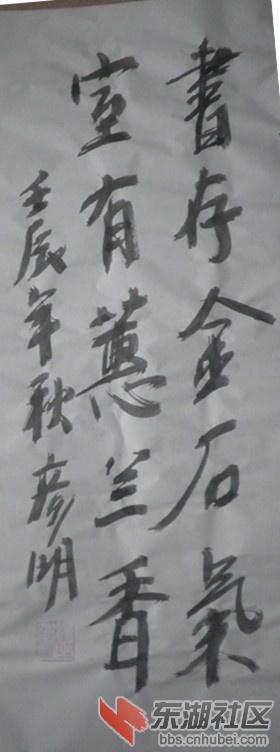 書存金石氣
室有蕙兰香
壬辰年秋彦明
东湖社区
bbs.cnhubei.com